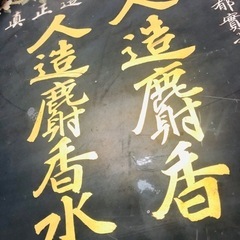 都實
人造麝香
人造麝香水
真正